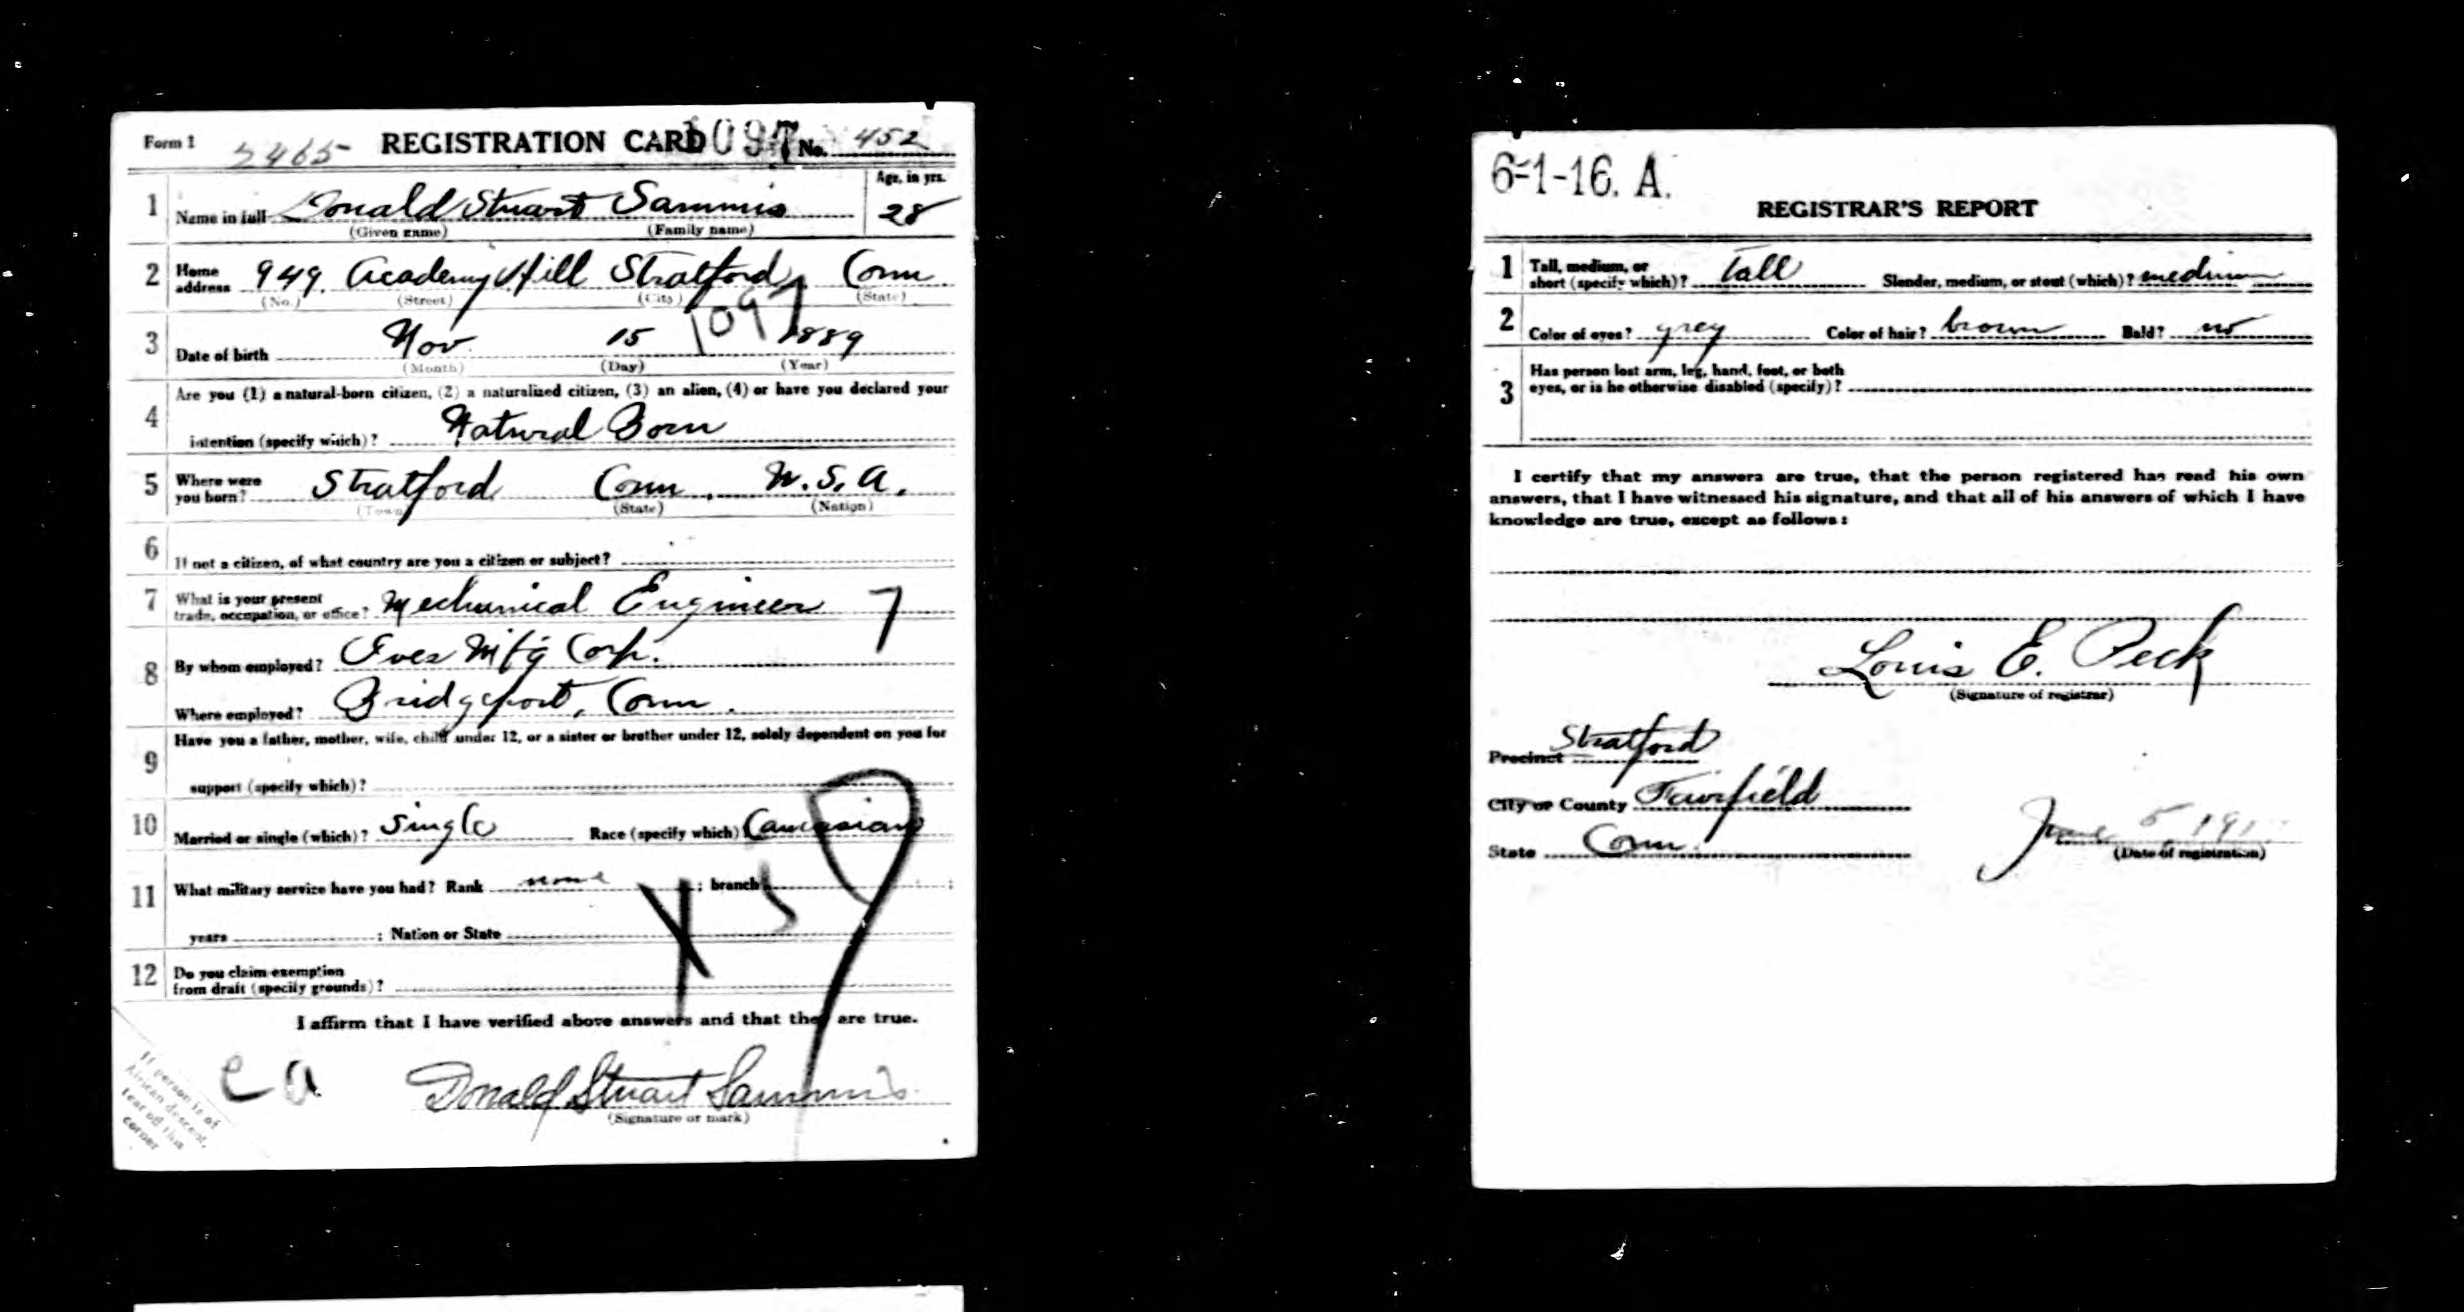 Form 1 2465 REGISTRATION CARD 1097 No. 452
1 Name in full Donald Stuart Sammis Age, in yrs. 28
(Given name) (Family name)
2 Home address 949. Academy Hill Stratford, Conn
(No.) (Street) (City) (State)
1097
3 Date of birth Nov. 15 1889
(Month) (Day) (Year)
4 Are you (1) a natural-born citizen, (2) a naturalized citizen, (3) an alien, (4) or have you declared your
intention (specify which)? Natural Born
5 Where were you born? Stratford Conn. U.S.A.
(Town) (State) (Nation)
6 If not a citizen, of what country are you a citizen or subject?
7 What is your present
trade, occupation, or office? Mechanical Engineer 7
8 By whom employed? Mf'g Corp.
Where employed? Bridgeport, Conn.
9 Have you a father, mother, wife, child under 12, or a sister or brother under 12, solely dependent on you for
support (specify which)?
10 Married or single (which)? Single Race (specify which) Caucasian
11 What military service have you had? Rank none ; branch ;
years ; Nation or State
12 Do you claim exemption
from draft (specify grounds)?
I affirm that I have verified above answers and that they are true.
Donald Stuart Sammis
(Signature or mark)
If person is of
African descent,
tear off this
corner
6-1-16. A.
REGISTRAR'S REPORT
1 Tall, medium, or
short (specify which)? Tall Slender, medium, or stout (which)? medium
2 Color of eyes? grey Color of hair? brown Bald? no
3 Has person lost arm, leg, hand, foot, or both
eyes, or is he otherwise disabled (specify)?
I certify that my answers are true, that the person registered has read his own
answers, that I have witnessed his signature, and that all of his answers of which I have
knowledge are true, except as follows:
Louis E. Peck
(Signature of registrar)
Precinct Stratford
City or County Fairfield
State Conn.
June 5
(Date of registration)